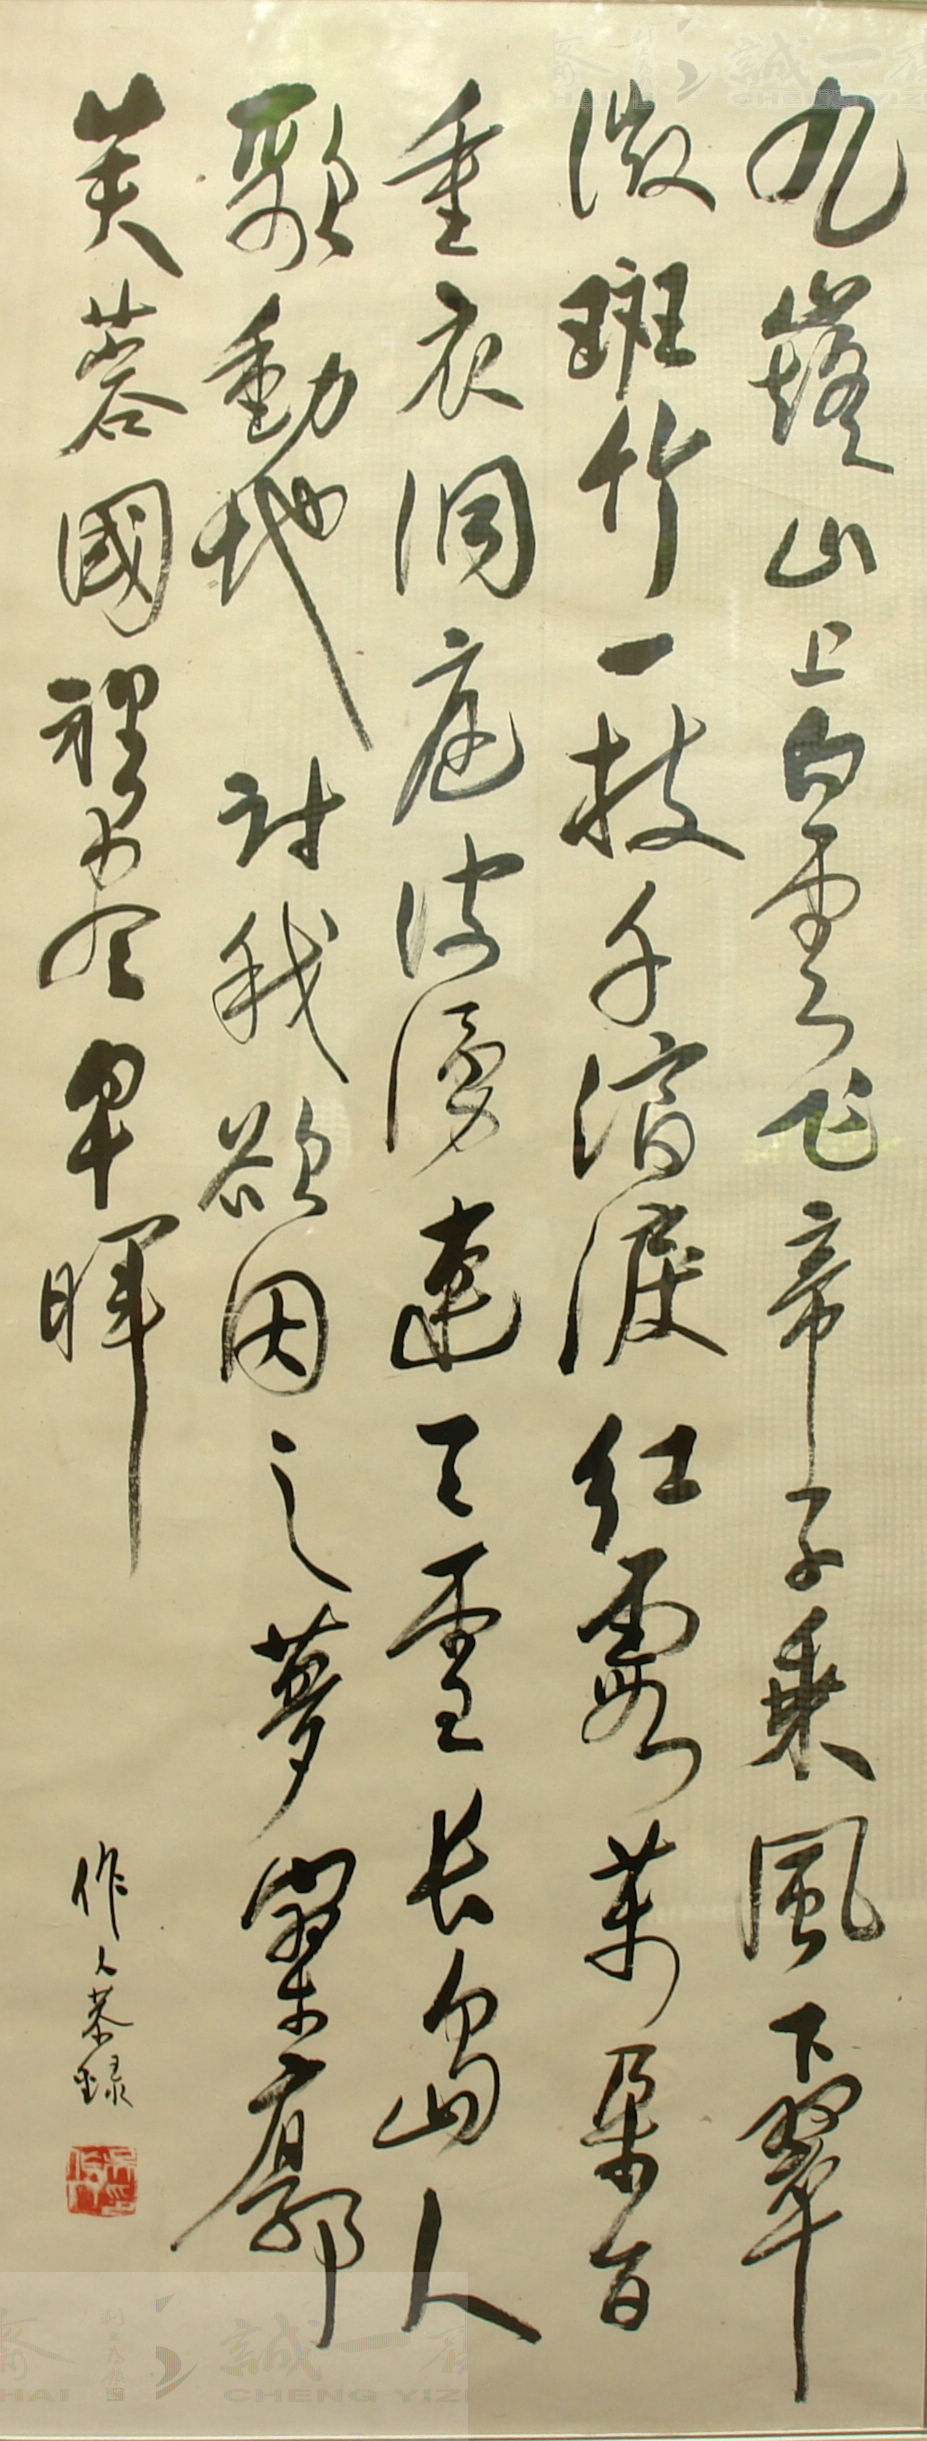 九嶷山上白雲飞帝子乘風下翠
微斑竹一枝千滴淚紅霞萬朵百
重衣洞庭波湧連天雪长島人
歌動地詩我欲因之夢寥廓
芙蓉國裡尽朝暉
作人恭録
誠一
CHENG YIZ
誠一
HAI CHENG YIZ